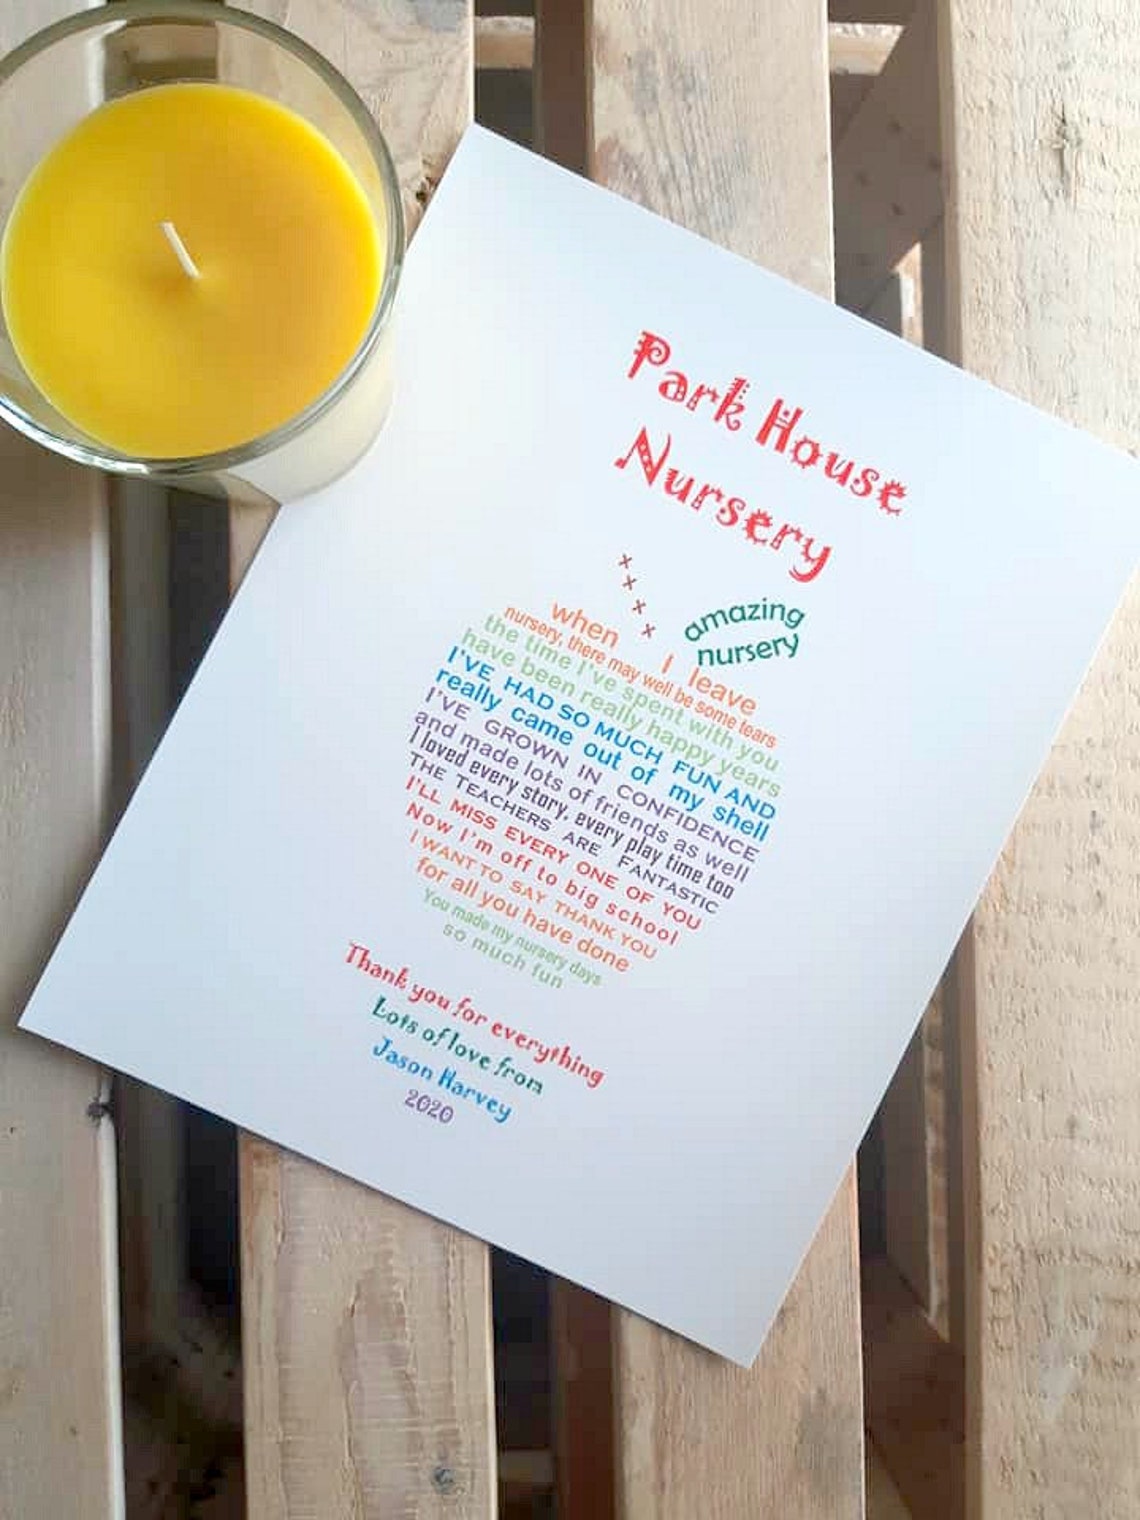 Park House
Nursery
x
x
x
x
amazing
nursery
when I leave
nursery, there may well be some tears
the time I've spent with you
have been really happy years
I'VE HAD SO MUCH FUN AND
really came out of my shell
I'VE GROWN IN CONFIDENCE
and made lots of friends as well
I loved every story, every play time too
THE TEACHERS ARE FANTASTIC
I'LL MISS EVERY ONE OF YOU
Now I'm off to big school
I WANT TO SAY THANK YOU
for all you have done
You made my nursery days
so much fun
Thank you for everything
Lots of love from
Jason Harvey
2020